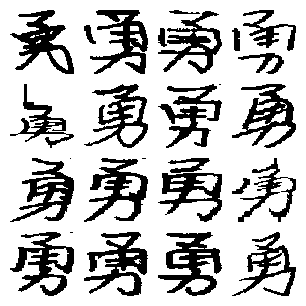 勇勇勇勇
勇勇勇勇
勇勇勇勇
勇勇勇勇